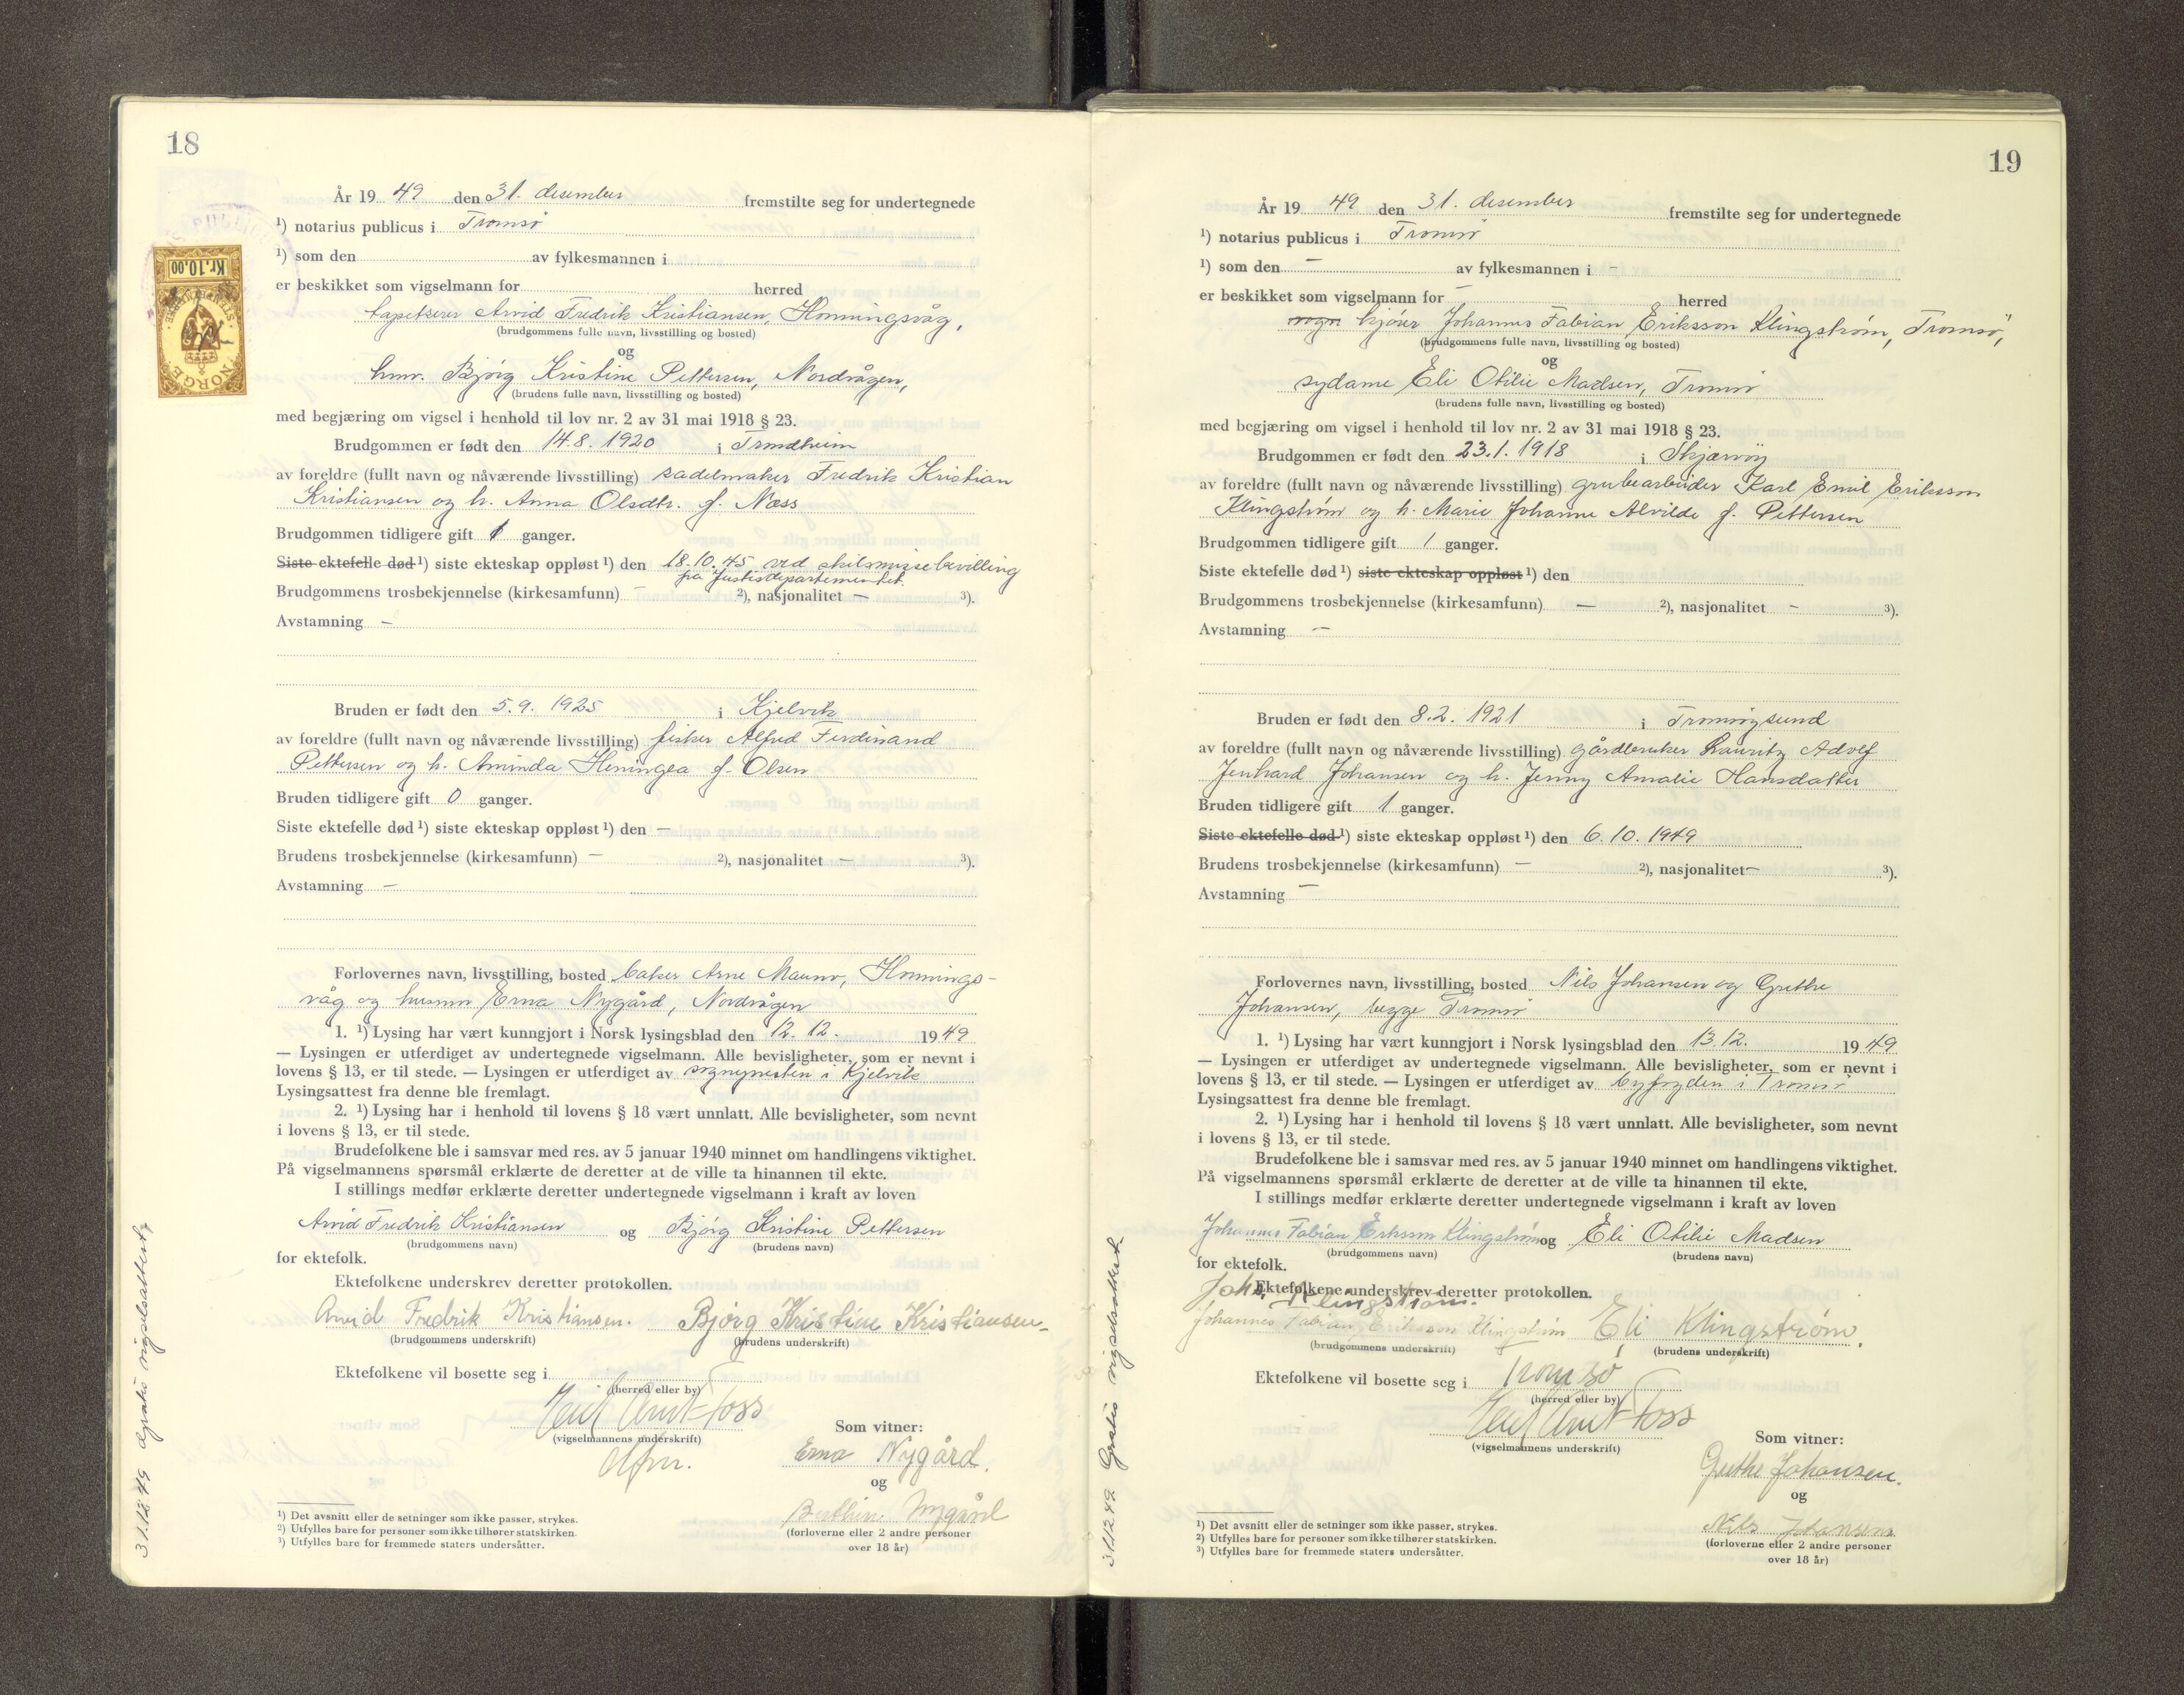 18
År 19 49 den 31. desember fremstilte seg for undertegnede
¹) notarius publicus i Tromsø
¹) som den av fylkesmannen i
er beskikket som vigselmann for herred
tapetserer Arvid Fredrik Kristiansen, Honningsvåg,
(brudgommens fulle navn, livsstilling og bosted)
og
hmr. Bjørg Kristine Pettersen, Nordvågen,
(brudens fulle navn, livsstilling og bosted)
med begjæring om vigsel i henhold til lov nr. 2 av 31 mai 1918 § 23.
Brudgommen er født den 14.8. 1920 i Trondheim
av foreldre (fullt navn og nåværende livsstilling) sadelmaker Fredrik Kristian
Kristiansen og h. Anna Olsdtr. f. Næss
Brudgommen tidligere gift 1 ganger.
Siste ektefelle død ¹) siste ekteskap oppløst ¹) den 18.10.45 ved skilsmissebevilling
fra Justisdepartementet.
Brudgommens trosbekjennelse (kirkesamfunn) ²), nasjonalitet — ³).
Avstamning —
Bruden er født den 5.9. 1925 i Kjelvik
av foreldre (fullt navn og nåværende livsstilling) fisker Alfred Ferdinand
Pettersen og h. Aminda Heningea f. Olsen
Bruden tidligere gift 0 ganger.
Siste ektefelle død ¹) siste ekteskap oppløst ¹) den —
Brudens trosbekjennelse (kirkesamfunn) — ²), nasjonalitet — ³).
Avstamning —
Forlovernes navn, livsstilling, bosted baker Arne Mauno, Honnings-
våg og husmor Erna Nygård, Nordvågen
1. ¹) Lysing har vært kunngjort i Norsk lysingsblad den 12. 12. 19 49
— Lysingen er utferdiget av undertegnede vigselmann. Alle bevisligheter, som er nevnt i
lovens § 13, er til stede. — Lysingen er utferdiget av sognepresten i Kjelvik
Lysingsattest fra denne ble fremlagt.
2. ¹) Lysing har i henhold til lovens § 18 vært unnlatt. Alle bevisligheter, som nevnt
i lovens § 13, er til stede.
Brudefolkene ble i samsvar med res. av 5 januar 1940 minnet om handlingens viktighet.
På vigselmannens spørsmål erklærte de deretter at de ville ta hinannen til ekte.
I stillings medfør erklærte deretter undertegnede vigselmann i kraft av loven
Arvid Fredrik Kristiansen og Bjørg Kristine Pettersen
(brudgommens navn) (brudens navn)
for ektefolk.
Ektefolkene underskrev deretter protokollen.
Arvid Fredrik Kristiansen. Bjørg Kristine Kristiansen
(brudgommens underskrift) (brudens underskrift)
Ektefolkene vil bosette seg i
(herred eller by)
(vigselmannens underskrift)
Som vitner:
Erna Nygård.
og
Nygård
(forloverne eller 2 andre personer
over 18 år)
¹) Det avsnitt eller de setninger som ikke passer, strykes.
²) Utfylles bare for personer som ikke tilhører statskirken.
³) Utfylles bare for fremmede staters undersåtter.
31.12.49 gratis vigselsattest,
Kr.10,00
NORGE
19
År 19 49 den 31. desember fremstilte seg for undertegnede
¹) notarius publicus i Tromsø
¹) som den — av fylkesmannen i —
er beskikket som vigselmann for — herred
vogn kjører Johannes Fabian Eriksson Klingstrøm, Tromsø,
(brudgommens fulle navn, livsstilling og bosted)
og
sydame Eli Otilie Madsen, Tromsø
(brudens fulle navn, livsstilling og bosted)
med begjæring om vigsel i henhold til lov nr. 2 av 31 mai 1918 § 23.
Brudgommen er født den 23.1. 1918 i Skjærvøy
av foreldre (fullt navn og nåværende livsstilling) grubearbeider Karl Emil Eriksson
Klingstrøm og h. Marie Johanne Alvilde f. Pettersen
Brudgommen tidligere gift 1 ganger.
Siste ektefelle død ¹) siste ekteskap oppløst ¹) den
Brudgommens trosbekjennelse (kirkesamfunn) — ²), nasjonalitet — ³).
Avstamning —
Bruden er født den 8.2. 1921 i Tromsøysund
av foreldre (fullt navn og nåværende livsstilling) gårdbruker Lauritz Adolf
Jenhard Johansen og h. Jenny Amalie Hansdatter
Bruden tidligere gift 1 ganger.
Siste ektefelle død ¹) siste ekteskap oppløst ¹) den 6. 10. 1949
Brudens trosbekjennelse (kirkesamfunn) — ²), nasjonalitet — ³).
Avstamning —
Forlovernes navn, livsstilling, bosted Nils Johansen og Grethe
Johansen, begge Tromsø
1. ¹) Lysing har vært kunngjort i Norsk lysingsblad den 13.12. 19 49
— Lysingen er utferdiget av undertegnede vigselmann. Alle bevisligheter, som er nevnt i
lovens § 13, er til stede. — Lysingen er utferdiget av byfogden i Tromsø
Lysingsattest fra denne ble fremlagt.
2. ¹) Lysing har i henhold til lovens § 18 vært unnlatt. Alle bevisligheter, som nevnt
i lovens § 13, er til stede.
Brudefolkene ble i samsvar med res. av 5 januar 1940 minnet om handlingens viktighet.
På vigselmannens spørsmål erklærte de deretter at de ville ta hinannen til ekte.
I stillings medfør erklærte deretter undertegnede vigselmann i kraft av loven
Johannes Fabian Eriksson Klingstrøm og Eli Otilie Madsen
(brudgommens navn) (brudens navn)
for ektefolk.
Ektefolkene underskrev deretter protokollen.
Joh. Klingstrøm.
Johannes Fabian Eriksson Klingstrøm Eli Klingstrøm.
(brudgommens underskrift) (brudens underskrift)
Ektefolkene vil bosette seg i Tromsø
(herred eller by)
(vigselmannens underskrift)
Som vitner:
Grethe Johansen.
og
Nils Johansen
(forloverne eller 2 andre personer
over 18 år)
¹) Det avsnitt eller de setninger som ikke passer, strykes.
²) Utfylles bare for personer som ikke tilhører statskirken.
³) Utfylles bare for fremmede staters undersåtter.
31/12 49 Gratis vigselsattest